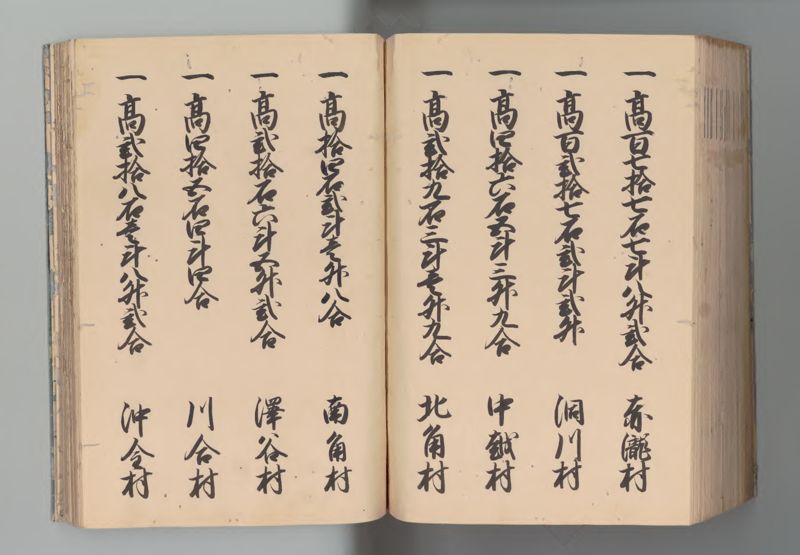 一 高百七拾七石七斗八升弐合 赤瀧村
一 高百弐拾七石弐斗弐升 洞川村
一 高四拾六石五斗三升九合 中越村
一 高弐拾九石三斗壱升九合 北角村
一 高拾四石弐斗壱升八合 南角村
一 高弐拾石六斗五升弐合 澤谷村
一 高四拾五石四斗四合 川合村
一 高弐拾八石壱斗八升弐合 沖金村